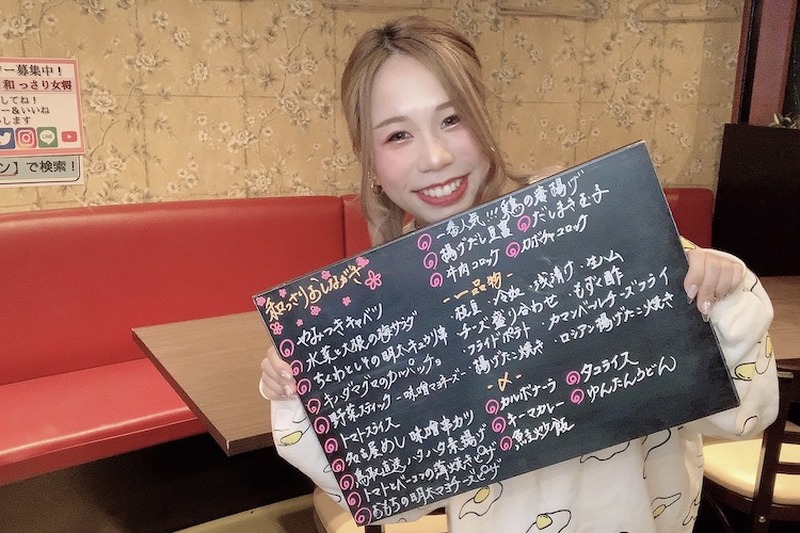 ー募集中！
和っさり女将
してね！
ー＆いいね
します
LINE
ン】で検索！
和っさりおしながき
やみつきキャベツ
水菜と大根の梅サラダ
ちくわとしその明太キュウリ串
キハダマグロのカルパッチョ
野菜スティック -味噌マヨネーズ-
トマトスライス
名古屋めし 味噌串カツ
鳥取直送ハタハタ素揚げ
トマトとベーコンの薄焼きピザ
おもちの明太マヨチーズピザ
一番人気!!! 鶏の唐揚げ
揚げだし豆腐
だしまき玉子
牛肉コロッケ
カボチャコロッケ
-一品物-
枝豆・冷奴・浅漬け・生ハム
チーズ盛り合わせ・もずく酢
・フライドポテト・カマンベールチーズフライ
・揚げたこ焼き・ロシアン揚げたこ焼き
-〆-
カルボナーラ
タコライス
キーマカレー
ゆんたんうどん
炒飯